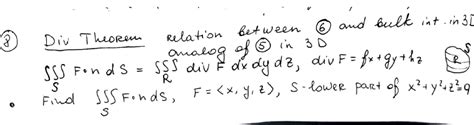 ⑧ Div Theorem relation between ⑥ and bulk int. in 3D
analog of ⑤ in 3D
∭_S F•n dS = ∭_R div F dx dy dz, div F = fx + gy + hz R S
• Find ∭_S F•n dS, F = <x, y, z>, S-lower part of x²+y²+z²=9